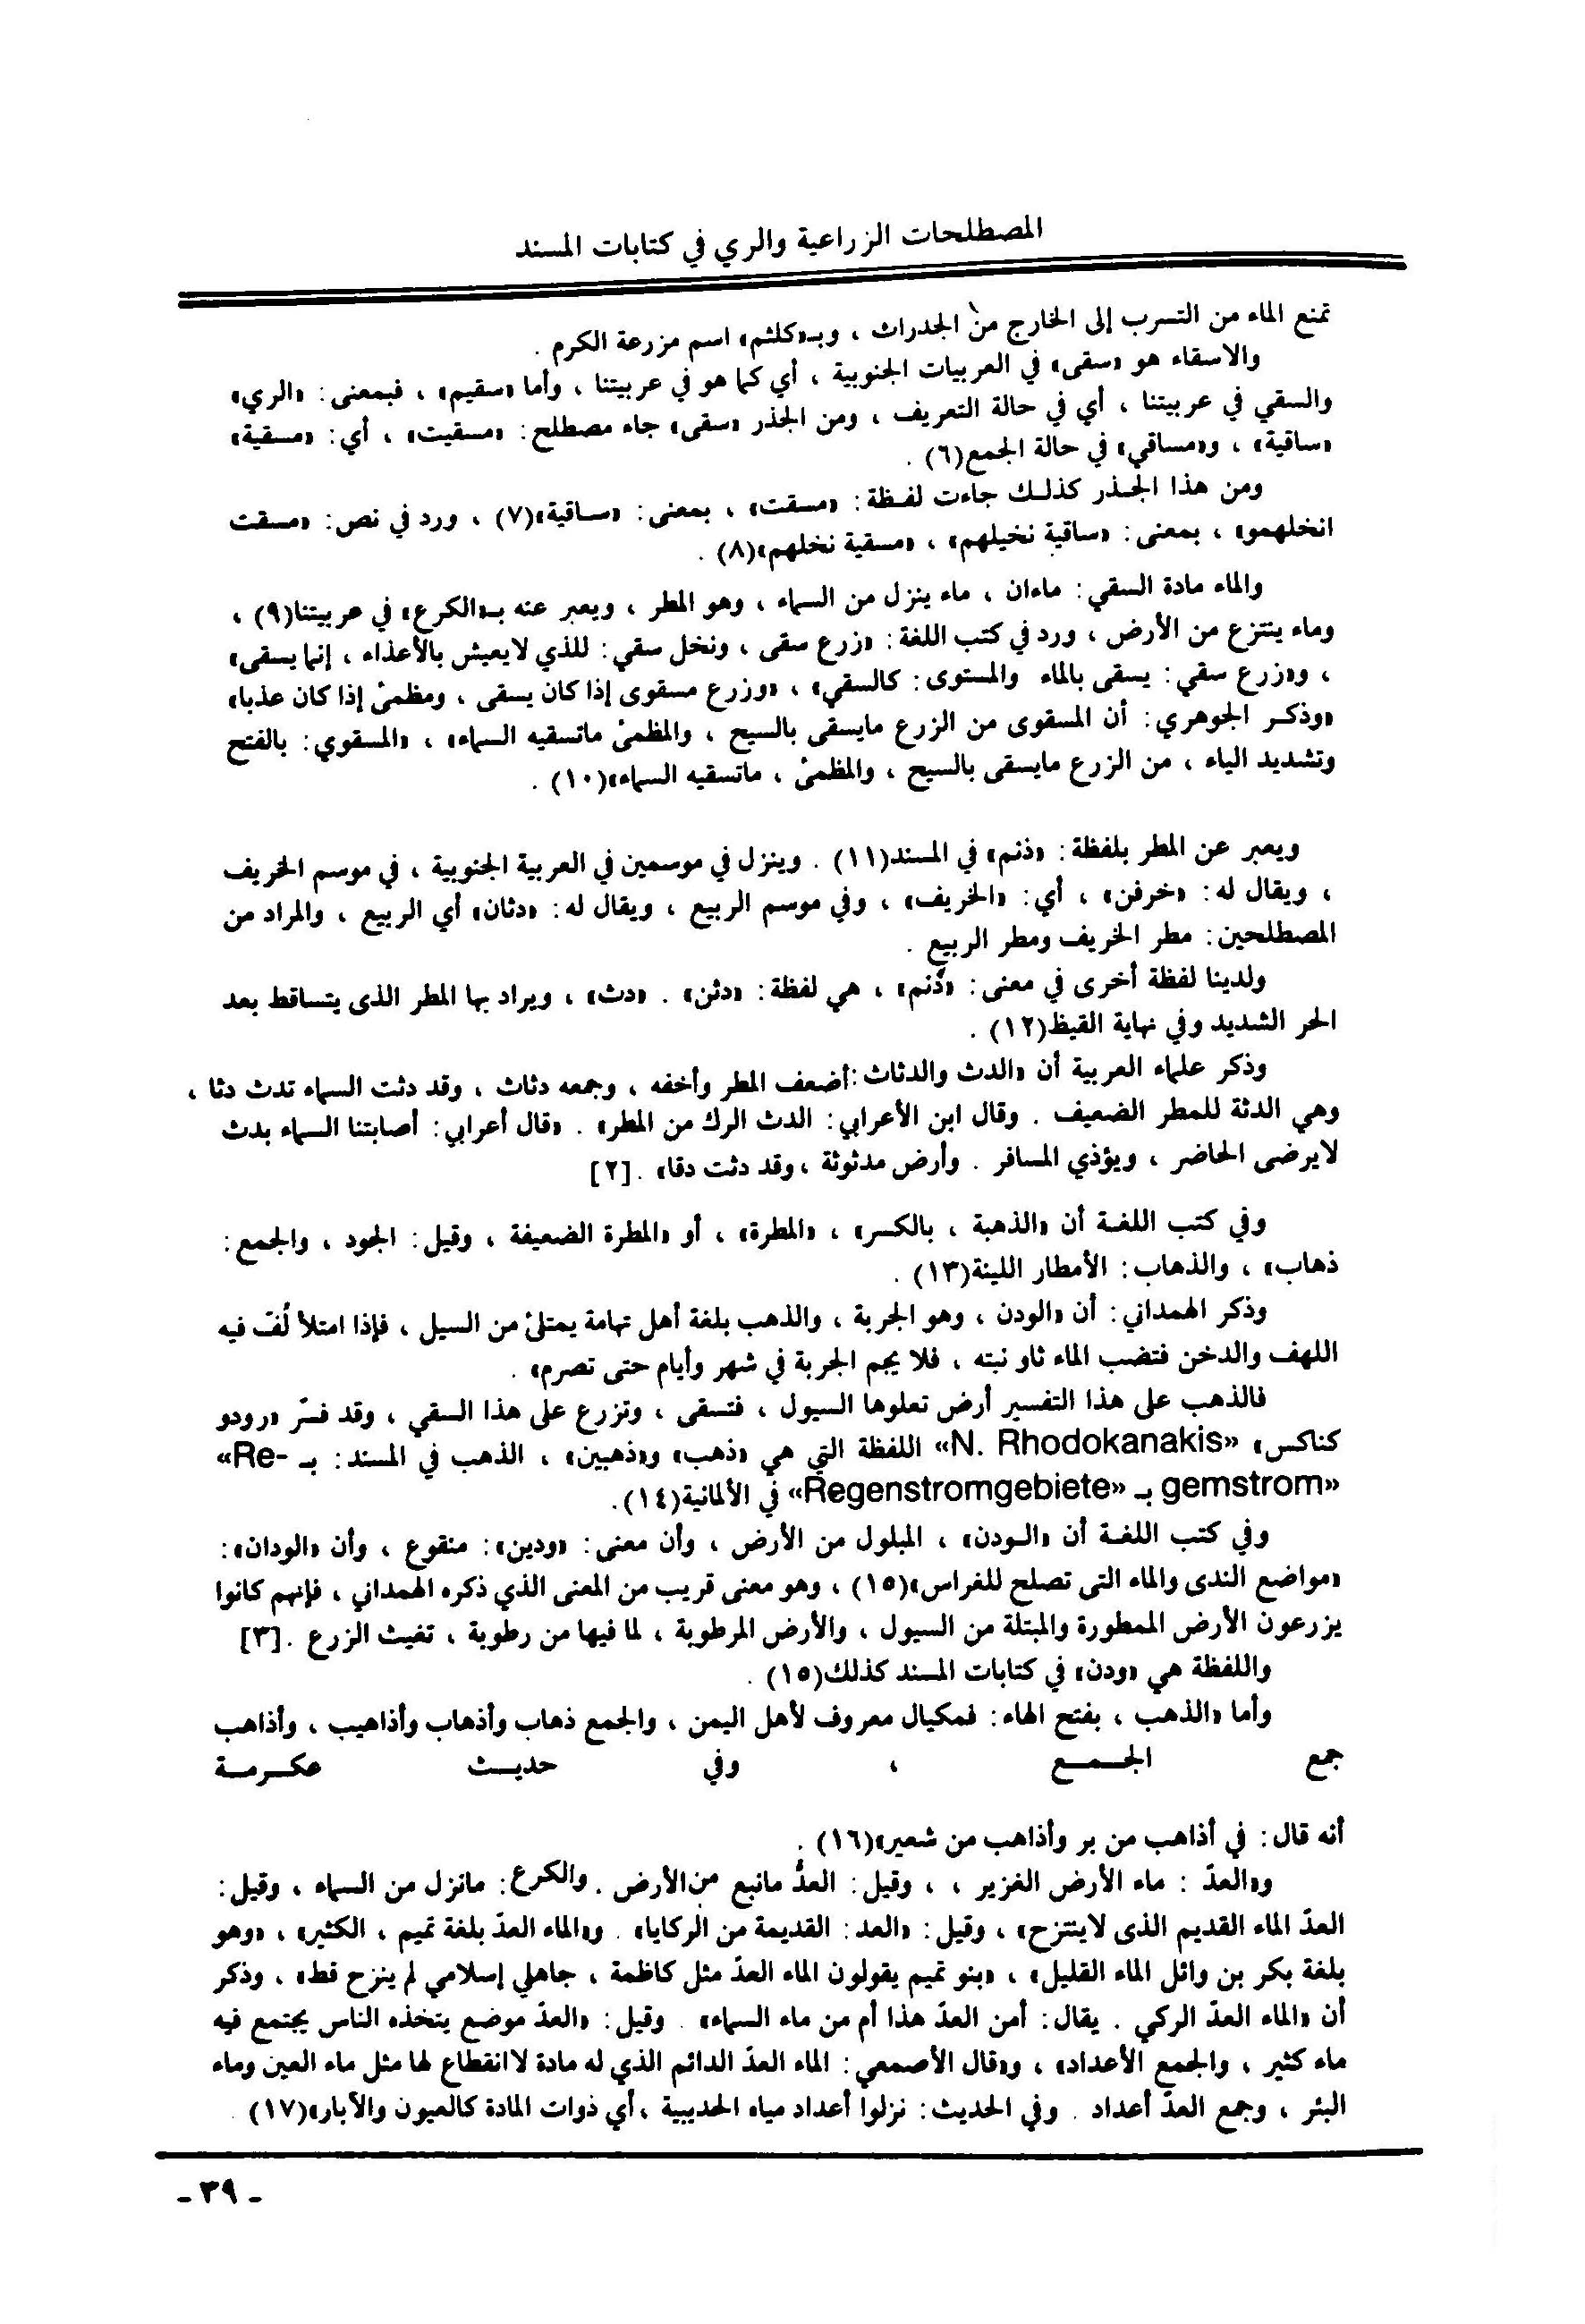 المصطلحات الزراعية والري في كتابات المسند
تمنع الماء من التسرب إلى الخارج من الجدراث ، وبـ«كلثم» اسم مزرعة الكرم .
والاسقاء هو «سقى» في العربيات الجنوبية ، أي كما هو في عربيتنا ، وأما «سقيم» ، فبمعنى: «الري»
والسقي في عربيتنا ، أي في حالة التعريف ، ومن الجذر «سقى» جاء مصطلح: «مسقيت» ، أي: «مسقية»
«ساقية» ، و«مساقي» في حالة الجمع(٦) .
ومن هذا الجذر كذلك جاءت لفظة: «مسقت» ، بمعنى: «ساقية»(٧) ، ورد في نص: «مسقت
انخلهمو» ، بمعنى: «ساقية نخيلهم» ، «مسقية نخلهم»(٨) .
والماء مادة السقي: ماءان ، ماء ينزل من السماء ، وهو المطر ، ويعبر عنه بـ«الكرع» في عربيتنا(٩) ،
وماء ينتزع من الأرض ، ورد في كتب اللغة: «زرع سقى ، ونخل سقي: للذي لايعيش بالأعذاء ، إنما يسقى»
، و«زرع سقي: يسقى بالماء والمستوى: كالسقي» ، «وزرع مسقوى إذا كان يسقى ، ومظمئ إذا كان عذبا»
«وذكر الجوهري: أن المسقوى من الزرع مايسقى بالسيح ، والمظمئ ماتسقيه السماء» ، «المسقوي: بالفتح
وتشديد الياء ، من الزرع مايسقى بالسيح ، والمظمئ ، ماتسقيه السماء»(١٠) .
ويعبر عن المطر بلفظة: «ذنم» في المسند(١١) . وينزل في موسمين في العربية الجنوبية ، في موسم الخريف
، ويقال له: «خرفن» ، أي: «الخريف» ، وفي موسم الربيع ، ويقال له: «دثان» أي الربيع ، والمراد من
المصطلحين: مطر الخريف ومطر الربيع .
ولدينا لفظة أخرى في معنى: «ذنم» ، هي لفظة: «دثن» . «دث» ، ويراد بها المطر الذى يتساقط بعد
الحر الشديد وفي نهاية القيظ(١٢) .
وذكر علماء العربية أن «الدث والدثاث: أضعف المطر وأخفه ، وجمعه دثاث ، وقد دثت السماء تدث دثا ،
وهي الدثة للمطر الضعيف . وقال ابن الأعرابي: الدث الرك من المطر» . «قال أعرابي: أصابتنا السماء بدث
لايرضى الحاضر ، ويؤذي المسافر . وأرض مدثوثة ، وقد دثت دقا» .[٢]
وفي كتب اللغة أن «الذهبة ، بالكسر» ، «المطرة» ، أو «المطرة الضعيفة ، وقيل: الجود ، والجمع:
ذهاب» ، والذهاب: الأمطار اللينة(١٣) .
وذكر الهمداني: أن «الودن ، وهو الجربة ، والذهب بلغة أهل تهامة يمتلئ من السيل ، فإذا امتلأ لُفّ فيه
اللهف والدخن فتضب الماء ثاو نبته ، فلا يجم الجربة في شهر وأيام حتى تصرم» .
فالذهب على هذا التفسير أرض تعلوها السيول ، فتسقى ، وتزرع على هذا السقي ، وقد فسّر «رودو
كناكس» «N. Rhodokanakis» اللفظة التي هي «ذهب» و«ذهبين» ، الذهب في المسند: بـ «Re-
gemstrom» بـ «Regenstromgebiete» في الألمانية(١٤).
وفي كتب اللغة أن «الودن» ، المبلول من الأرض ، وأن معنى: «ودين»: منقوع ، وأن «الودان»:
«مواضع الندى والماء التى تصلح للغراس»(١٥) ، وهو معنى قريب من المعنى الذي ذكره الهمداني ، فإنهم كانوا
يزرعون الأرض الممطورة والمبتلة من السيول ، والأرض المرطوبة ، لما فيها من رطوبة ، تغيث الزرع .[٣]
واللفظة هي «ودن» في كتابات المسند كذلك(١٥) .
وأما «الذهب ، بفتح الهاء: فمكيال معروف لأهل اليمن ، والجمع ذهاب وأذهاب وأذاهيب ، وأذاهب
جمع الجمع ، وفي حديث عكرمة
أنه قال: في أذاهب من بر وأذاهب من شعير»(١٦) .
و«العدّ : ماء الأرض الغزير ، ، وقيل: العدُّ مانبع من الأرض . والكرع: مانزل من السماء ، وقيل:
العدّ الماء القديم الذى لاينتزح» ، وقيل: «العد: القديمة من الركايا» . و«الماء العدّ بلغة تميم ، الكثير» ، «وهو
بلغة بكر بن وائل الماء القليل» ، «بنو تميم يقولون الماء العدّ مثل كاظمة ، جاهلي إسلامي لم ينزح قط» ، وذكر
أن «الماء العدّ الركي . يقال: أمن العدّ هذا أم من ماء السماء» . وقيل: «العدّ موضع يتخذه الناس يجتمع فيه
ماء كثير ، والجمع الأعداد» ، و«قال الأصمعي: الماء العدّ الدائم الذي له مادة لا انقطاع لها مثل ماء العين وماء
البئر ، وجمع العدّ أعداد . وفي الحديث: نزلوا أعداد مياه الحديبية ، أي ذوات المادة كالعيون والآبار»(١٧) .
- ٣٩ -